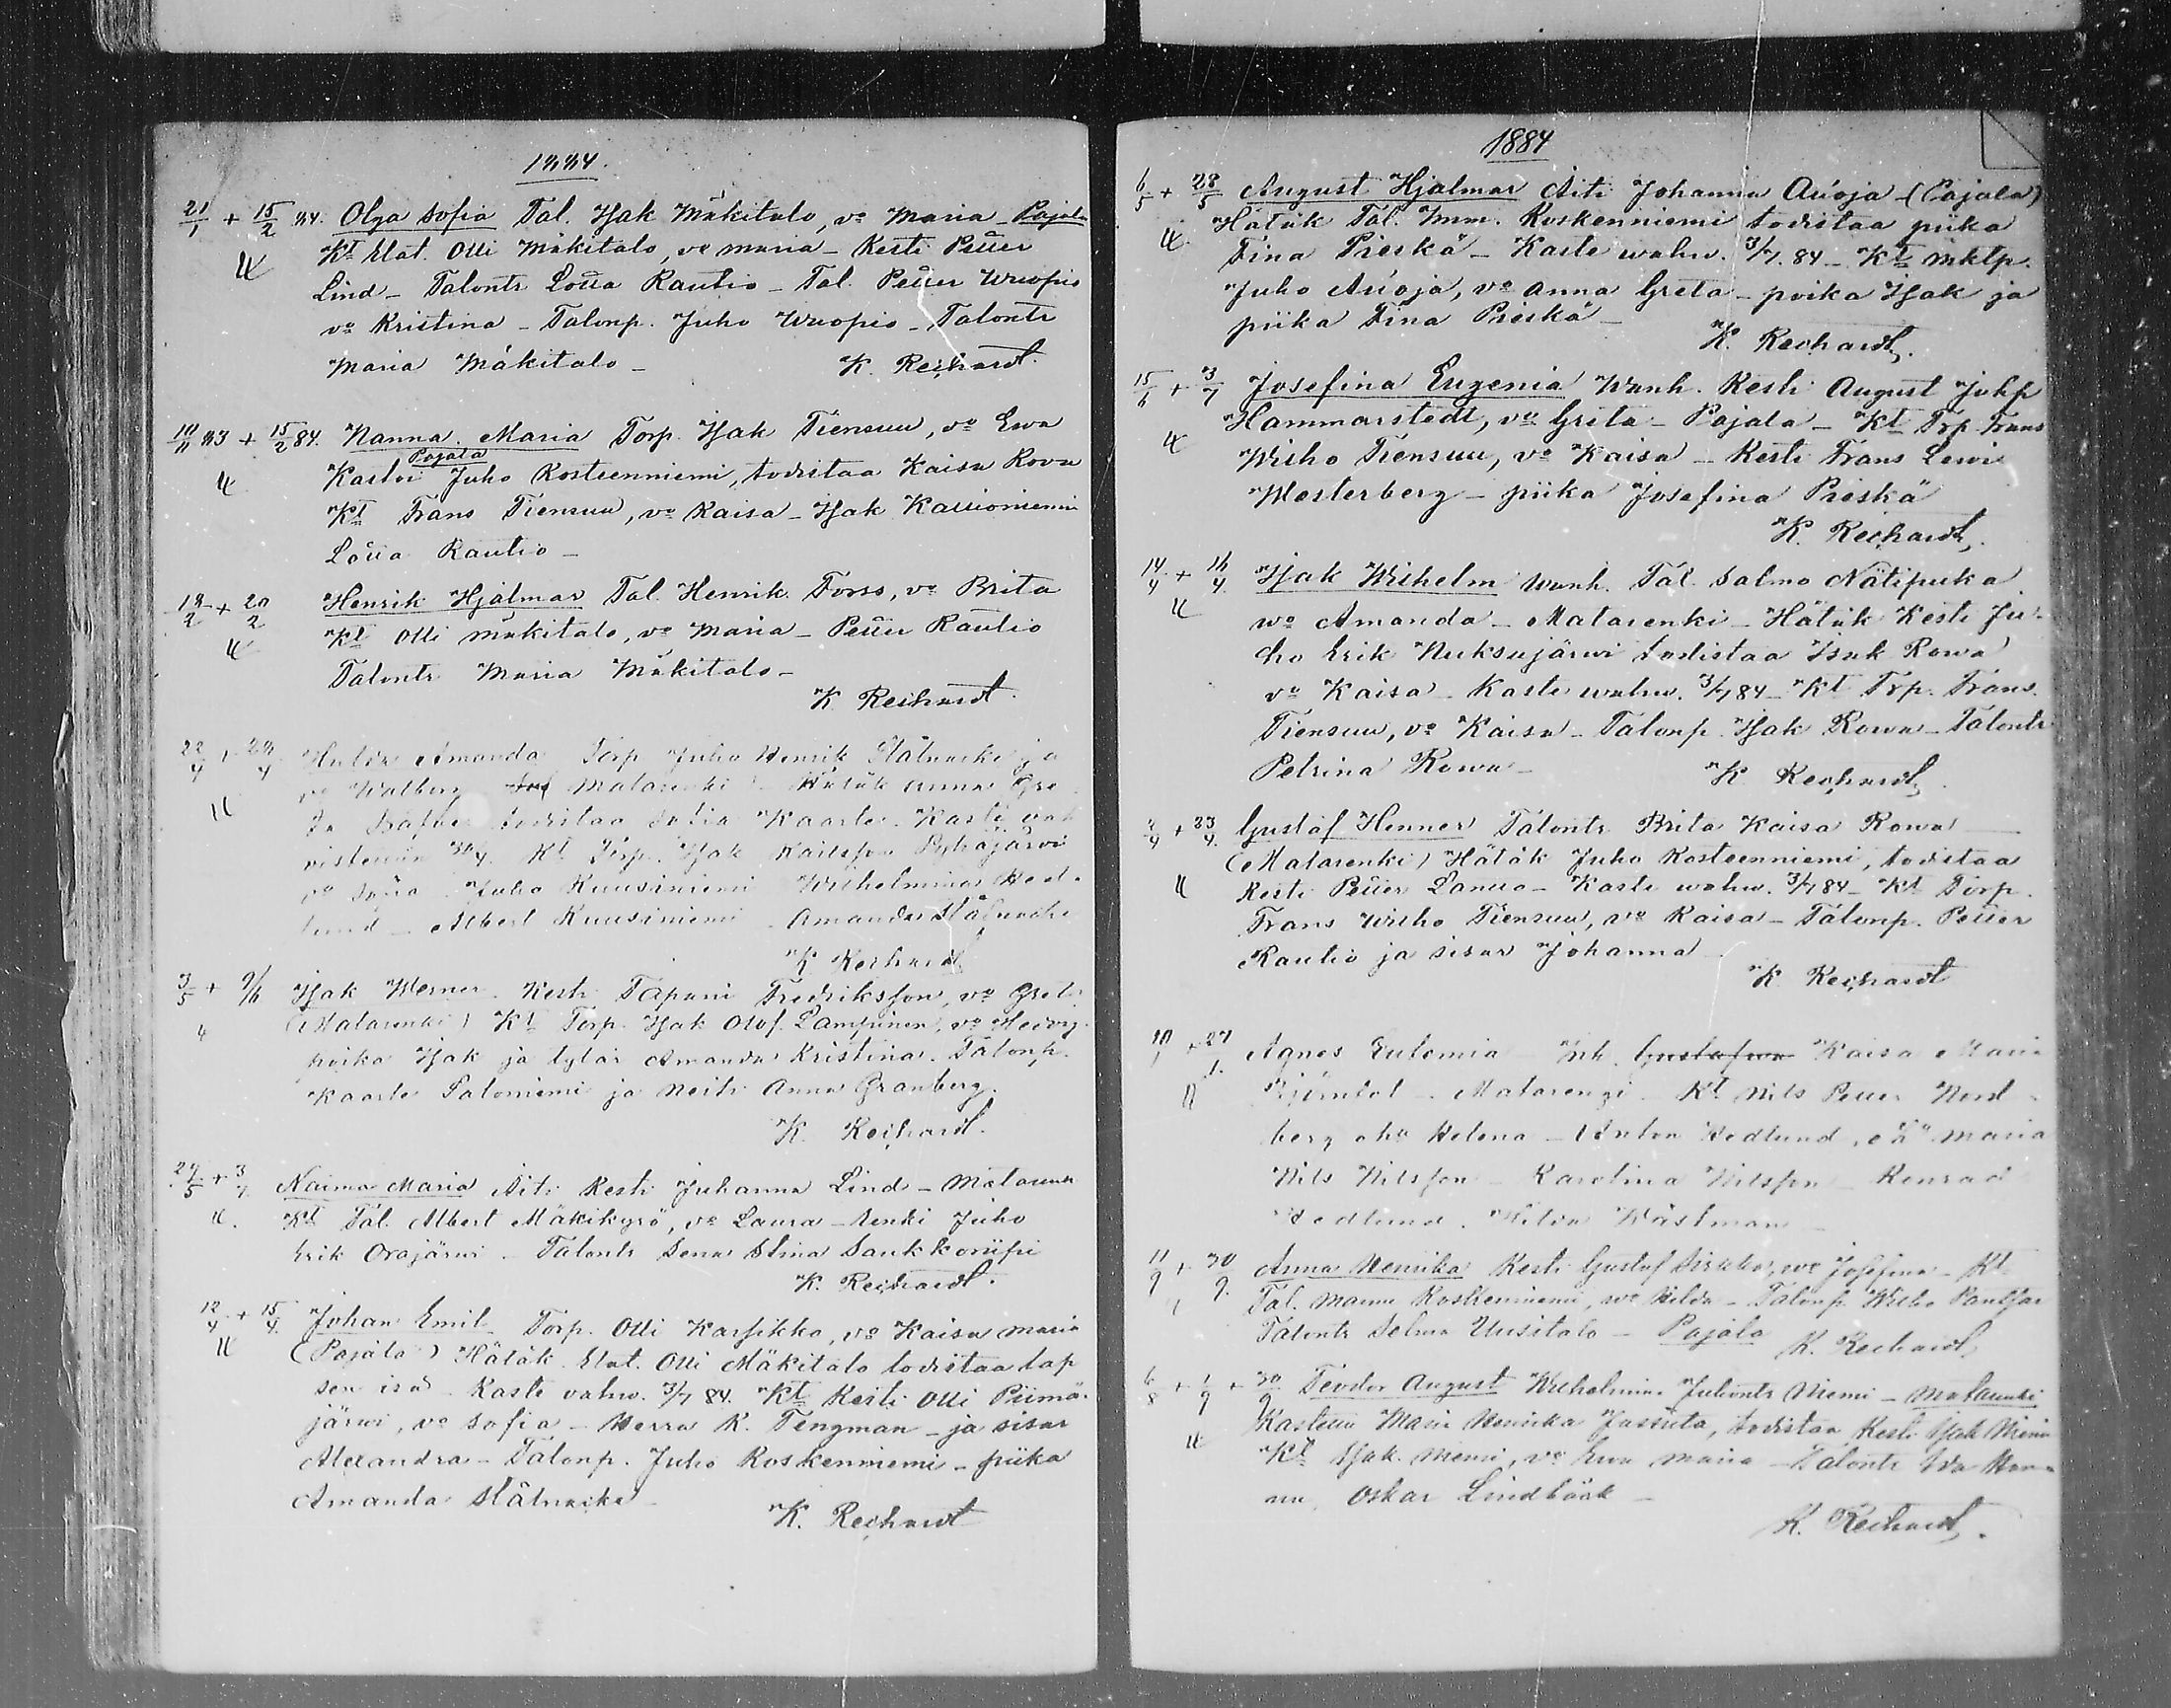 1884.
21/1 + 15/2 84. Olga Sofia Tal. Isak Mäkitalo, vo Maria - Pajala
Kt Elat. Olli Mäkitalo, vo Maria - Kesti Petter
Lind - Talontr Lotta Rautio - Tal. Petter Wuopio
vo Kristina - Talonp. Juho Wuopio - Talontr
Maria Mäkitalo - K. Reichardt.
10/11 83 + 15/2 84. Nanna Maria Torp. Isak Tiensuu, vo Ewa
Pajala
Kastoi Juho Koskenniemi, todistaa Kaisa Rova
Kt Frans Tiensuu, vo Kaisa - Isak Kallioniemi
Lotta Rautio -
18/2 + 20/2 Henrik Hjalmar Tal. Henrik Forss, vo Brita
Kt Olli Mäkitalo, vo Maria - Petter Rautio
Talontr Maria Mäkitalo -
K. Reichardt.
22/4 + /4 Hulda Amanda Torp Juho Henrik Stålnacke ja
vo Matarenki - Hätäk Anna Gre
ta todistaa Kaarlo. Kaste vah
Kt Torp. Isak Pyhäjärvi
vo Juho Kuusiniemi Wilhelmina Hed-
lund - Albert Kuusiniemi - Amanda Stålnacke
K. Reichardt
3/5 + 9/6 Isak Werner Kesti Tapani Fredriksson, vo Greta
(Matarenki) Kt Torp. Isak Olof Lampinen, vo Hedvig.
poika Isak ja tytär Amanda Kristina. Talonp.
Kaarlo Saloniemi ja Neiti Anna Granberg.
K. Reichardt.
24/5 + 3/7 Naima Maria Äiti Kesti Juhanna Lind - Matarenki
Kt Tal. Albert Mäkikyrö, vo Laura - Renki Juho
Erik Orajärwi - Talontr Sena Stina Saukkoriipi
K. Reichardt.
12/4 + 15/4 Johan Emil Torp. Olli Karsikko, vo Kaisa Maria
(Pajala) Hätäk. Elat. Olli Mäkitalo todistaa lap
sen isä - Kaste vahw. 3/7 84. Kt Kesti Olli Piimä-
järwi, vo Sofia - Herra K. Tengman - ja sisar
Alexandra - Talonp. Juho Koskenniemi - piika
Amanda Stålnacke -
K. Reichardt
1884
6/5 + 28/5 August Hjalmar Äiti Johanna Autioja - (Pajala)
Hätäk Tal. Imm. Koskenniemi todistaa piika
Fina Prieskä - Kaste wahw. 3/7. 84 - Kt mktp.
Juho Autioja, vo Anna Greta - poika Isak ja
piika Fina Prieskä -
K. Reichardt.
15/6 + 3/7 Josefina Eugenia Wanh. Kesti August Johs
Hammarstedt, vo Greta - Pajala - Kt Trp. Frans
Wilho Tiensuu, vo Kaisa - Kesti Frans Lewi
Westerberg - piika Josefina Prieskä
K. Reichardt.
14/4 + 16/4. Isak Wilhelm Wanh. Tal. Salmo Nätipuka
wo Amanda - Matarenki - Hätäk Kesti Ju-
ho Erik Nuksujärwi todistaa Isak Rowa
vo Kaisa - Kaste wahw. 3/7 84 - Kt Trp. Frans
Tiensuu, vo Kaisa - Talonp. Isak Rowa - Talontr
Petrina Rowa - K. Reichardt.
/4 + 23/4. Gustaf Henner Talontr Brita Kaisa Rowa
(Matarenki) Hätäk Juho Koskenniemi, todistaa
Kesti Petter Lantto - Kaste wahw. 3/7 84 - Kt Torp.
Frans Wilho Tiensuu, vo Kaisa - Talonp. Petter
Rautio ja sisar Johanna
K. Reichardt
10/1 + 27/1. Agnes Eufemia Inh. Gustafson Kaisa Maria
Björndal - Matarengi - Kt Nils Petter Nord-
berg oho Helena - Anton Hedlund, o Ho Maria
Nils Nilsson - Karolina Nilsson - Konrad
Hedlund. Hilda Wästman -
11/9 + 30/9. Anna Henrika Kesti Gustaf Sirkka, wo Josefina - Kt
Tal. Mannu Koskenniemi, wo Hilda - Talonp Wilho Pantsar
Talontr Selma Uusitalo - Pajala K. Reichardt
6/8 + 1/9 + 30/9 Teodor August Wilhelmina Juliontr Niemi - Matarenki
Kastanut Maria Henrika Jussila, todistaa Kesti Isak Niemi
Kt Isak Niemi, vo Ewa Maria - Talontr Ida Han-
nu Oskar Lindbäck -
K. Reichardt.